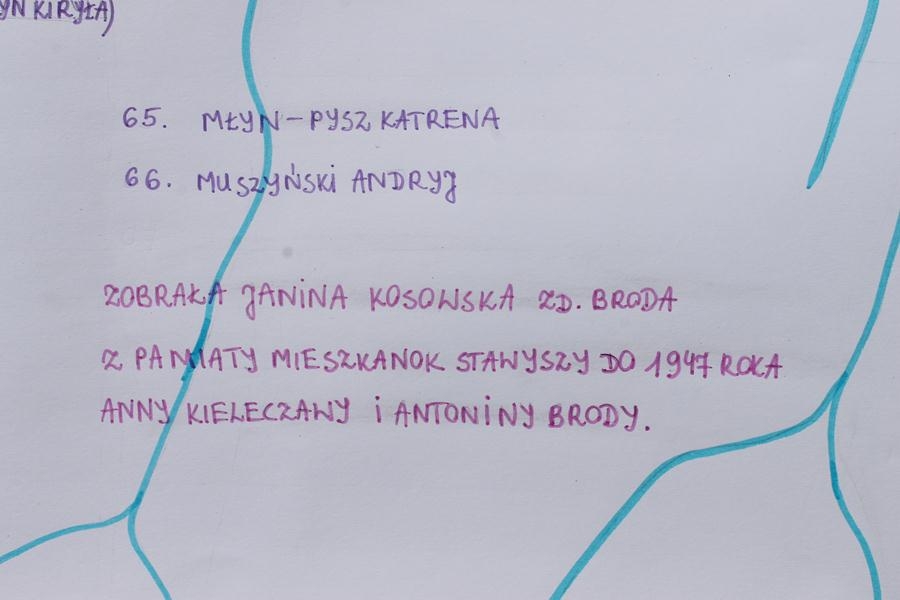 YN KIRYŁA)
65. MŁYN - PYSZ KATRENA
66. MUSZYŃSKi ANDRYJ
ZOBRAŁA JANiNA KOSOWSKA ZD. BRODA
Z PAMIATY MIESZKANOK STAWYSZY DO 1947 ROKA
ANNY KIELECZAWY i ANTONiNY BRODY.